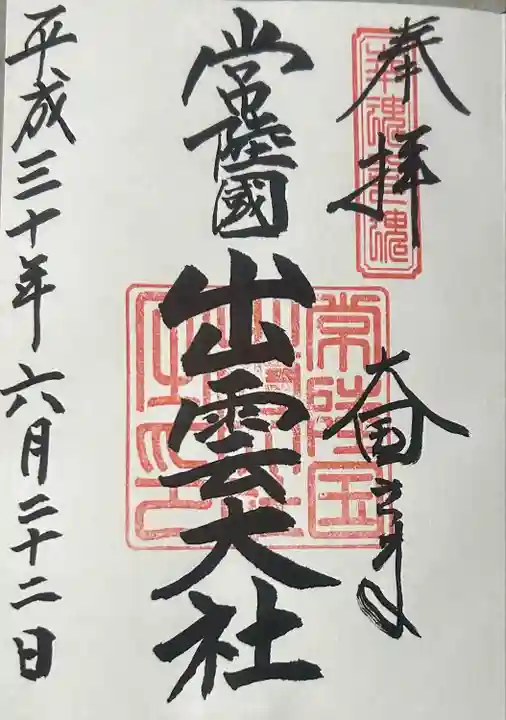 奉拝
幸魂奇魂
常陸國
出雲大社
常陸国
平成三十年六月二十二日